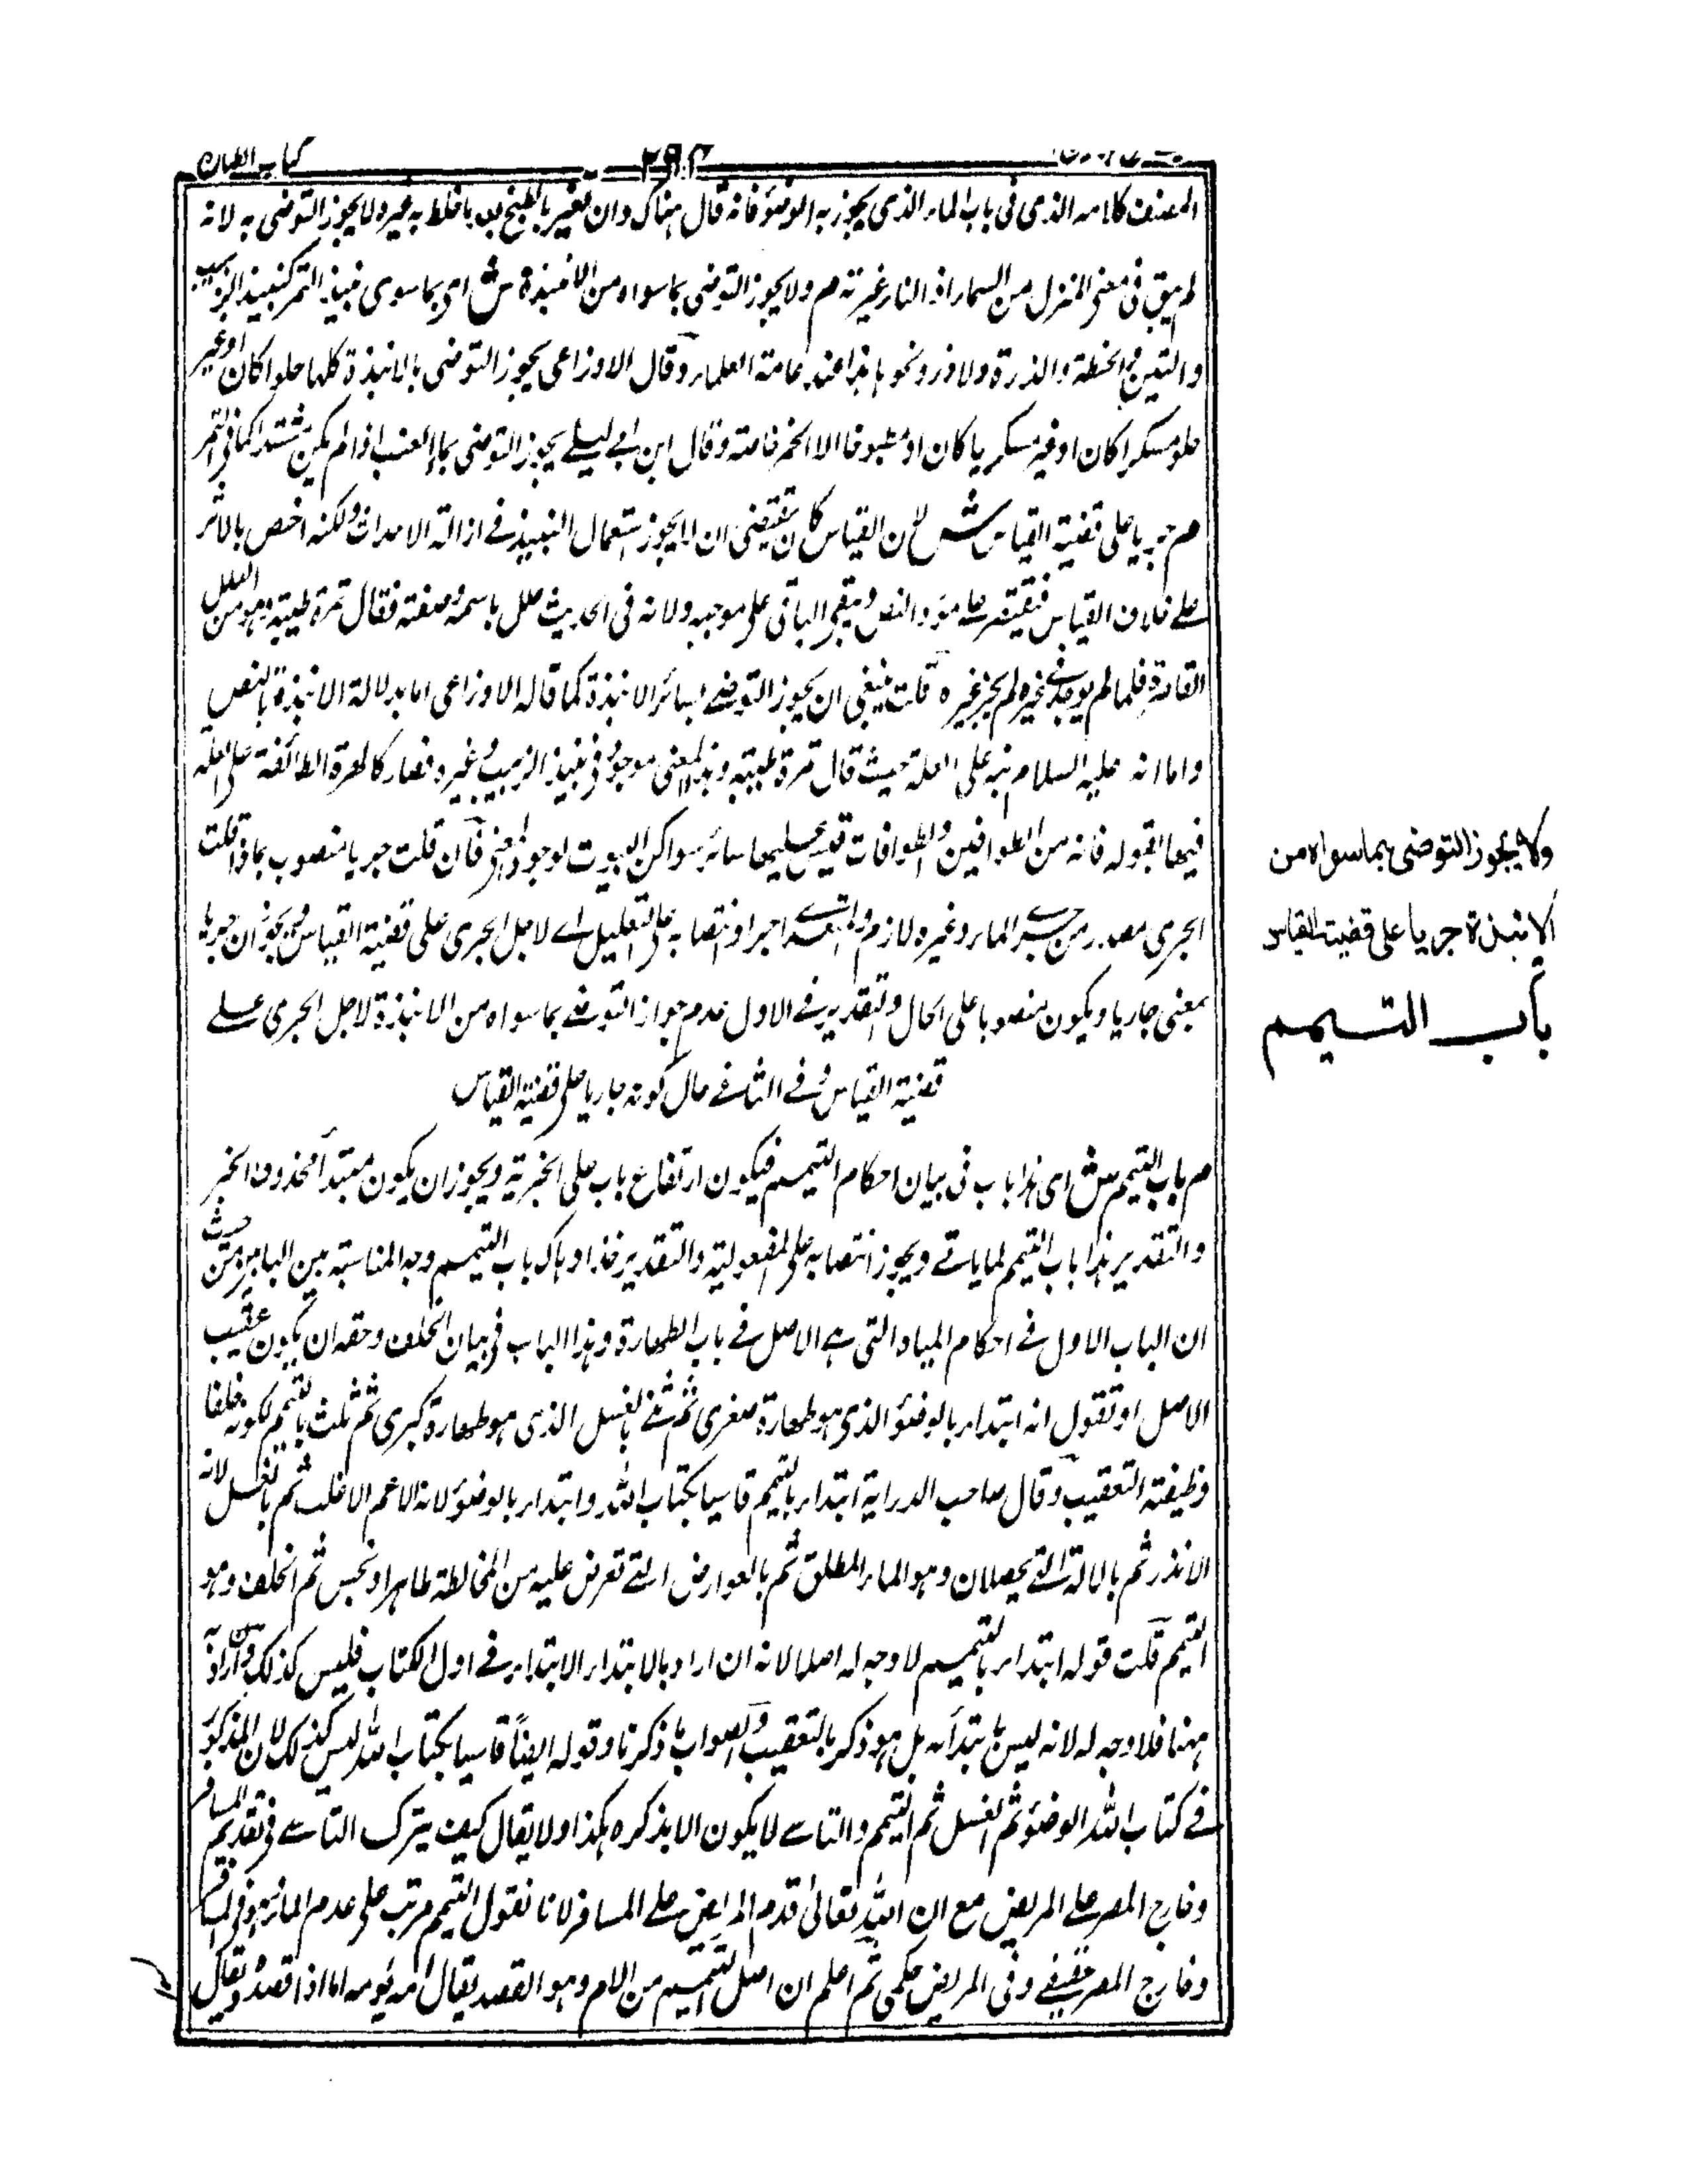 كتاب الطهارت
٢٩٢
المصنف كلامه الذى فى باب الماء الذى يجوز به الوضوء فانه قال هناك وان تغير بالطبخ بعد ما خلط به غيره لا يجوز التوضى به لانه
لم يبق فى معنى المنزل من السماء اذ النار غيرته م ولا يجوز التوضى بما سواه من الانبذة ش اى بما سوى نبيذ التمر كنبيذ الزبيب
والتين والحنطة والذرة والارز ونحوها هذا عند عامة العلماء وقال الاوزاعى يجوز التوضى بالانبذة كلها حلوا كان او غير
حلو مسكرا كان او غير مسكر نيا كان او مطبوخا الا الخمر خاصة وقال ابن ابى ليلے يجوز التوضى بماء العنب اذا لم يكن مشتدا كما فى التمر
م جريا على قضية القياس ش لان القياس كان يقتضى ان لا يجوز استعمال النبيذ فے ازالة الاحداث ولكنه اخص بالاثر
علے خلاف القياس فيقتصر علے مورد النص ويبقى الباقى على موجبه ولانه فى الحديث علل باسمه وصفته فقال تمرة طيبة وهو من العلل
القاصرة فلما لم يوجد فے غيره لم يجز بغيره قلت ينبغى ان يجوز التوضے بسائر الانبذة كما قاله الاوزاعى اما بدلالة الانبذة بالنص
واما انه عليه السلام نبه على العلة حيث قال تمرة طيبة وهذا المعنى موجود فى نبيذ الزبيب وغيره فصار كالهرة الطائفة على العلة
فيها بقوله فانه من الطوافين والطوافات قيس عليها سائر سواكن البيوت لوجود المعنى فان قلت جريا منصوب بماذا قلت
الجرى مصدر من جرے الماء وغيره لازم والمتعدے اجرا وانتصابه على التعليل اے لاجل الجرى على قضية القياس ويجوز ان جريا
بمعنى جاريا ويكون منصوبا على الحال والتقدير فے الاول عدم جواز التوضے بما سواه من الانبذة لاجل الجرى علے
قضية القياس وفے الثانے حال كونه جاريا على قضية القياس
م باب التيمم ش اى هذا باب فى بيان احكام التيمم فيكون ارتفاع باب على الخبرية ويجوز ان يكون مبتدأ محذوف الخبر
والتقدير هذا باب التيمم لما ياتے ويجوز انتصابه على المفعولية والتقدير خذ او هاك باب التيمم وجه المناسبة بين البابين من حيث
ان الباب الاول فے احكام المياه التى هے الاصل فے باب الطهارة وهذا الباب فى بيان الخلف وحقه ان يكون عقيب
الاصل او تقول انه ابتداء بالوضوء الذى هو طهارة صغرى ثم ثنے بالغسل الذى هو طهارة كبرى ثم ثلث بالتيمم لكونه خلفا
وظيفته التعقيب وقال صاحب الدراية ابتداء بالتيمم تاسيا بكتاب الله وابتداء بالوضوء لانه الاعم الاغلب ثم بالغسل لانه
الانذر ثم بالالة التے يحصلان وهو الماء المطلق ثم بالعوارض التے تعرض عليه من المخالطة طاهر او نجس ثم الخلف وهو
التيمم قلت قوله ابتداء بالتيمم لا وجه له اصلا لانه ان اراد بالابتداء الابتداء فے اول الكتاب فليس كذلك وان اراد به
ههنا فلا وجه له لانه ليس بابتدأه بل هو ذكر بالتعقيب والصواب ما ذكرنا وقوله ايضاً تاسيا بكتاب الله ليس كذلك لان المذكور
فے كتاب الله الوضوء ثم الغسل ثم التيمم والتاسے لا يكون الا بذكره هكذا ولا يقال كيف يترك التاسے فى تقديم المسافر
وخارج المصر علے المريض مع ان الله تعالىٰ قدم المريض علے المسافر لانا نقول التيمم مرتب على عدم الماء وفى المسافر
وخارج المصر حقيقے وفى المريض حكمى ثم اعلم ان اصل التيمم من الام وهو القصد يقال امه يؤمه اما اذا قصده ويقال
ولا يجوز التوضى بما سواه من
الانبذة جريا على قضية القياس
باب التــيمم